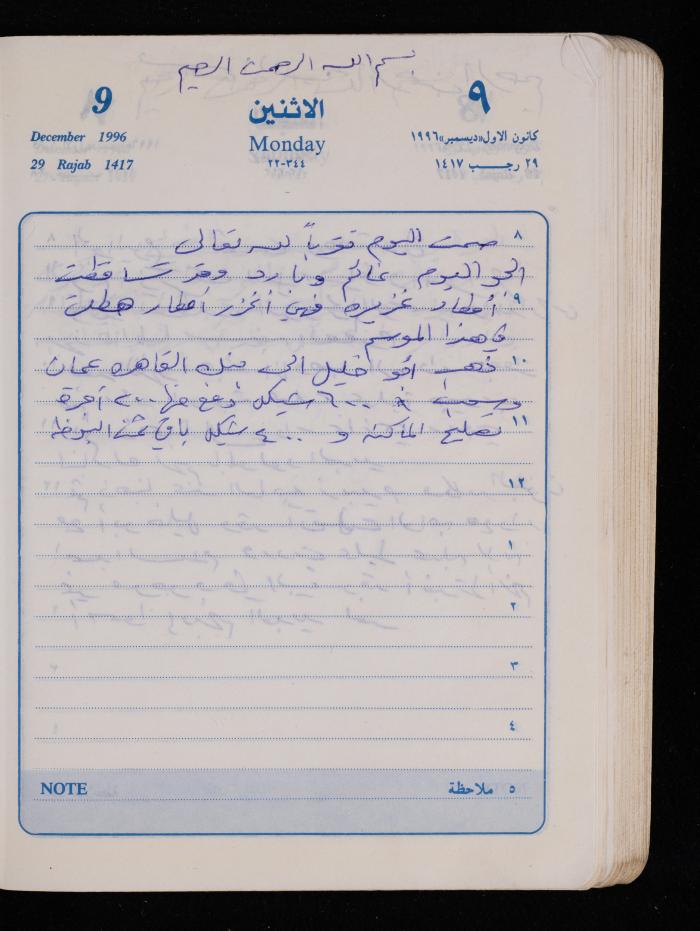 بسم الله الرحمن الرحيم
9 الاثنين ٩
December 1996 Monday كانون الاول «ديسمبر» ١٩٩٦
29 Rajab 1417 ٣٤٤-٢٢ ٢٩ رجب ١٤١٧
٨ صمت اليوم تقرباً لله تعالى
الجو اليوم غائم وبارد وقد تساقطت
٩ أمطار غزيره فهي أغزر أمطار هطلت
في هذا الموسم
١٠ ذهب أبو خليل الى بنك القاهره عمان
وسحب ٦٠٠ شيكل دفع منها ٢٠٠ أجرة
١١ تصليح الماكنه و ٤٠٠ شيكل باقي ثمن
١٢
١
٢
٣
٤
NOTE ٥ ملاحظة